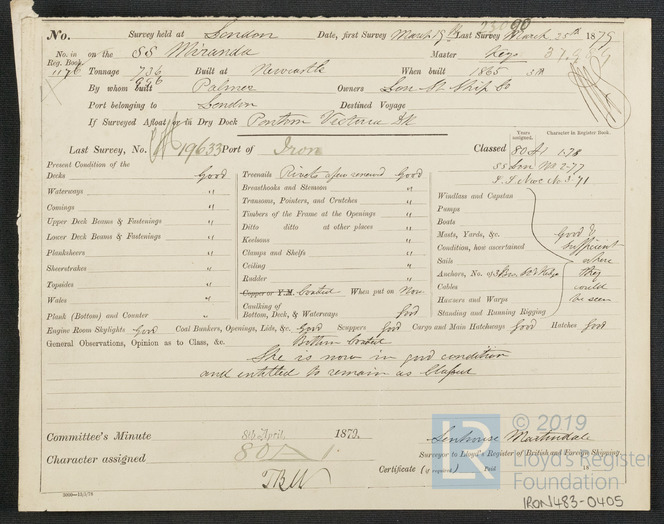 No. Survey held at London Date, first Survey March 19th Last Survey March 25th 1879
No. in Reg. Book. on the SS Miranda Master
1176 Tonnage 736 Built at Newcastle When built 1865
By whom built Palmer Owners Lon St Ship Co
Port belonging to London Destined Voyage
If Surveyed Afloat or in Dry Dock Pontoon Victoria Dk
Last Survey, No. 19633 Port of Iron Classed
Years assigned. Character in Register Book.
80 A1 1.78
SS Lon No 2-77
S.S Nwc No 3 71
Present Condition of the
Decks Good
Waterways "
Comings "
Upper Deck Beams & Fastenings "
Lower Deck Beams & Fastenings "
Planksheers "
Sheerstrakes "
Topsides "
Wales "
Plank (Bottom) and Counter "
Treenails Rivets a few renewed Good
Breasthooks and Stemson "
Transoms, Pointers, and Crutches "
Timbers of the Frame at the Openings "
Ditto ditto at other places "
Keelsons "
Clamps and Shelfs "
Ceiling "
Rudder "
Copper or Y.M. Coated When put on Now
Caulking of
Bottom, Deck, & Waterways Good
Windlass and Capstan
Pumps
Boats
Masts, Yards, &c.
Condition, how ascertained
Sails
Anchors, No. of
Cables
Hawsers and Warps
Standing and Running Rigging
Good &
sufficient
where
they
could
be seen
Engine Room Skylights Good Coal Bunkers, Openings, Lids, &c. Good Scuppers Good Cargo and Main Hatchways Good Hatches Good
General Observations, Opinion as to Class, &c. Bottom Coated
She is now in good condition
and entitled to remain as Classed
Committee's Minute 8th April, 1879.
Character assigned 80 A1.
Senhouse Martindale
Surveyor to Lloyd's Register of British and Foreign Shipping.
Certificate (if required) Paid 18
LR © 2019
Lloyd's Register
Foundation
IRON483-0405